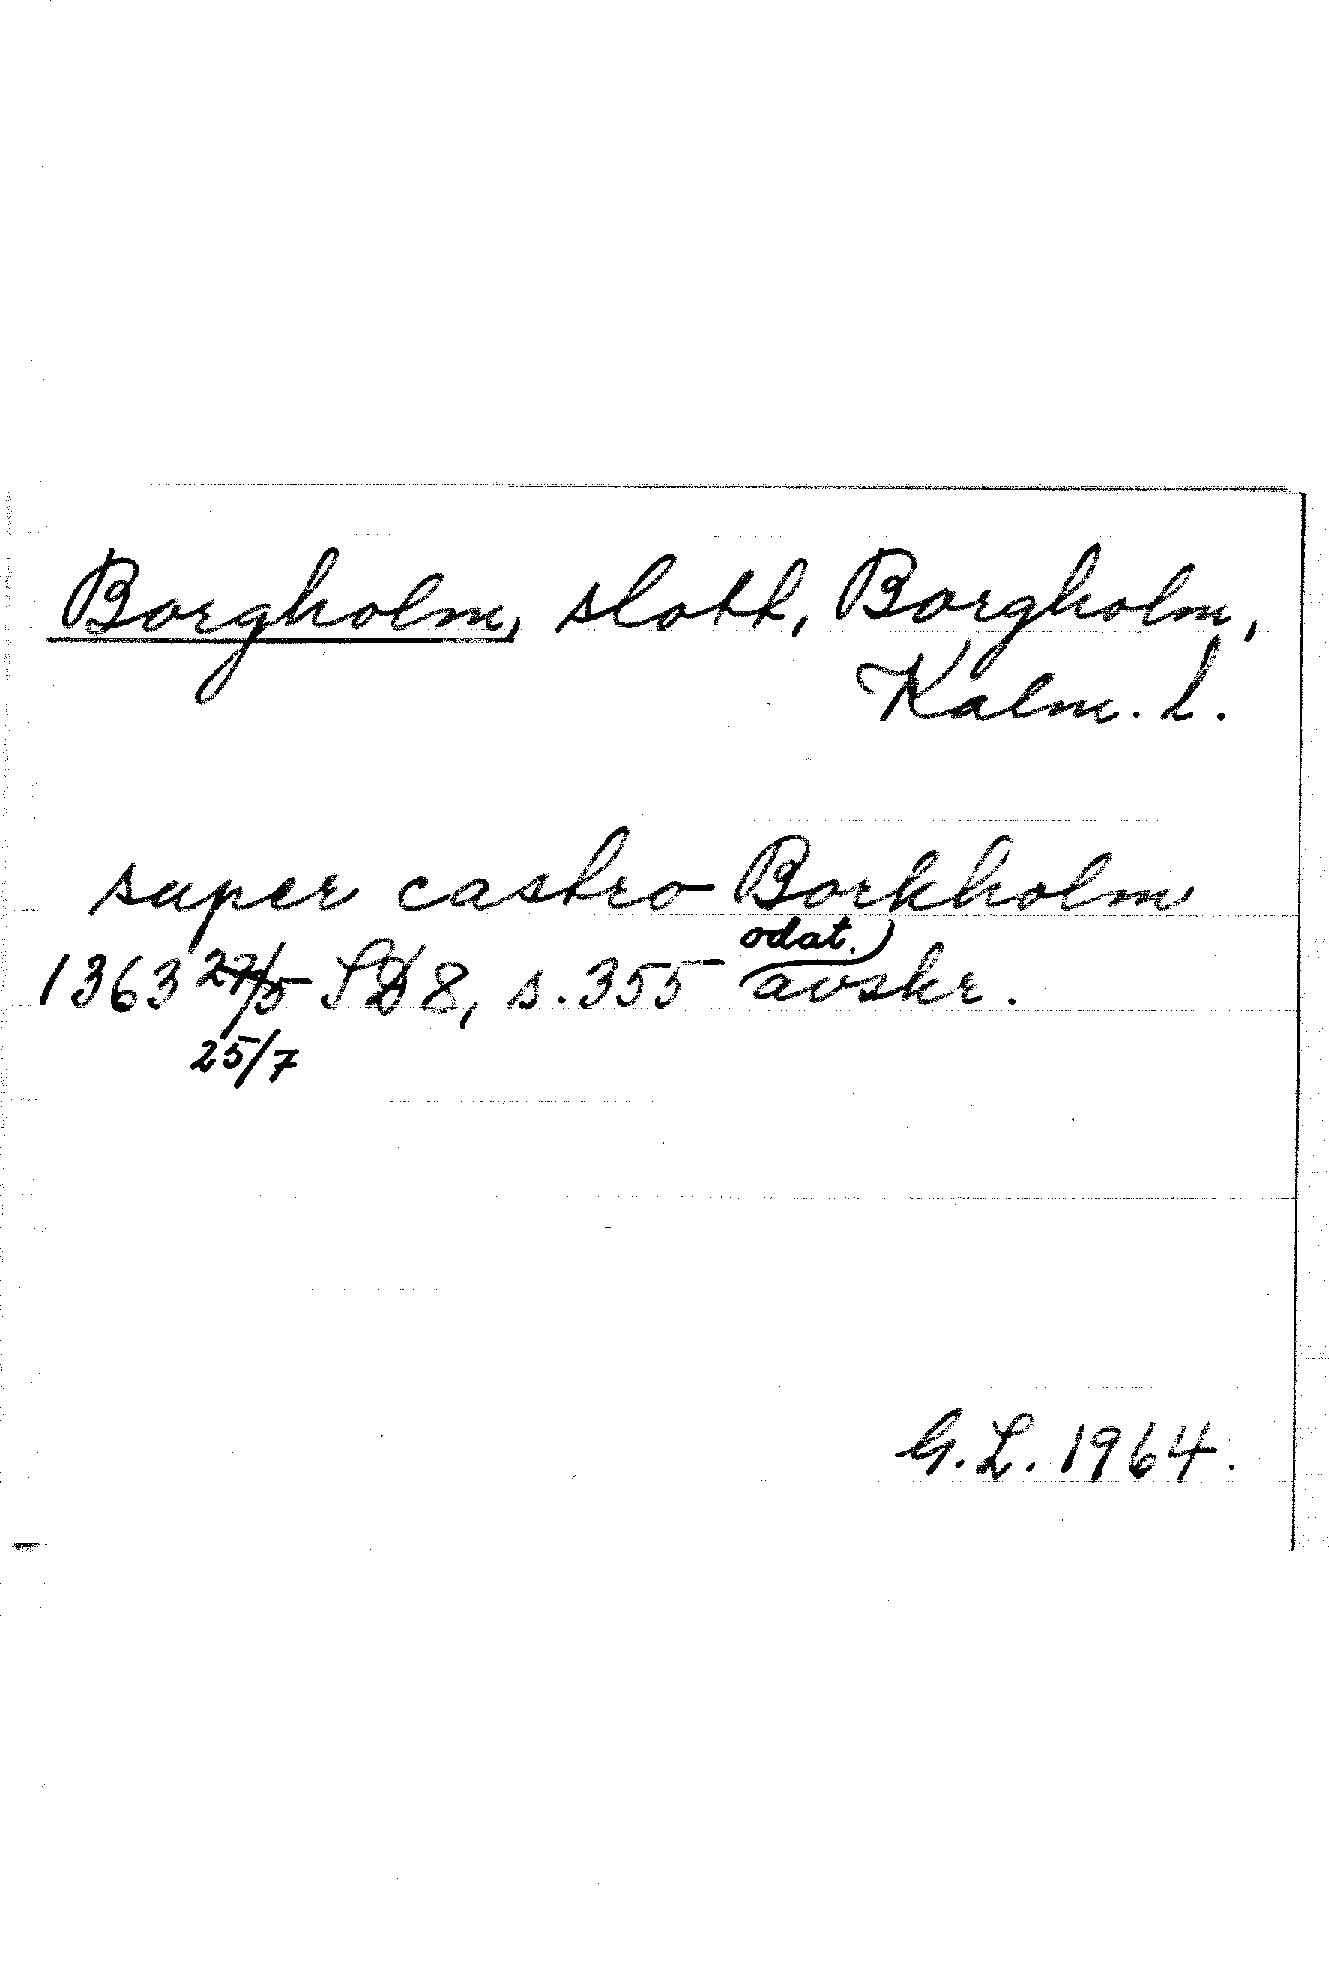 Borgholm, slott, Borgholm,
Kalm. l.
super castro Borkholm
odat.
1363 27/5 SD 8, s. 355 avskr.
25/7
G. L. 1964.